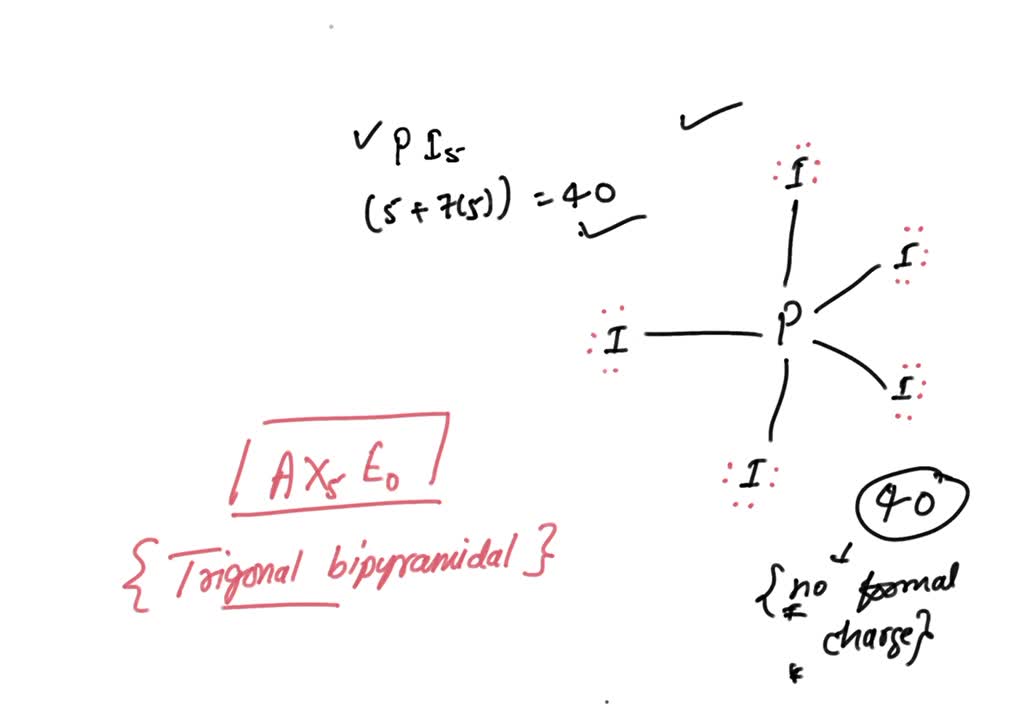 ✓ P I₅
(5 + 7(5)) = 40 ✓
I
I
I
P
I
I
AX₅ E₀
{Trigonal bipyramidal}
40
{no formal
charge}